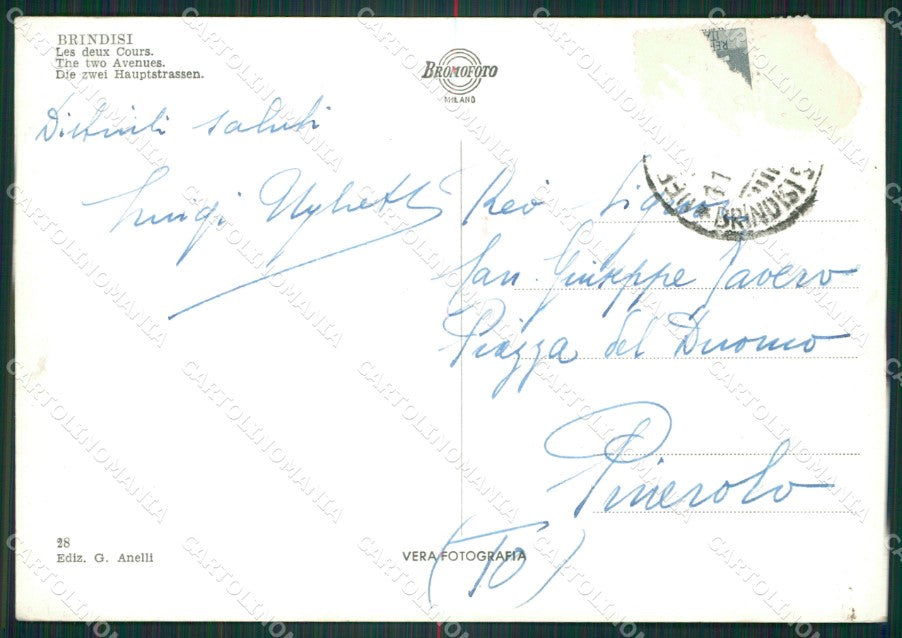 BRINDISI
Les deux Cours.
The two Avenues.
Die zwei Hauptstrassen.
BROMOFOTO
MILANO
Distinti saluti
Luigi
Rev. Signor
Can. Giuseppe Favero
Piazza del Duomo
Pinerolo
(TO)
BRINDISI
28
Ediz. G. Anelli
VERA FOTOGRAFIA
CARTOLINOMANIA